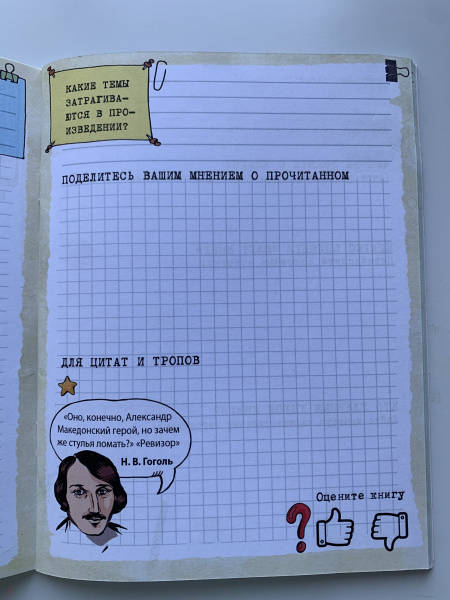 КАКИЕ ТЕМЫ
ЗАТРАГИВА-
ЮТСЯ В ПРО-
ИЗВЕДЕНИИ?
ПОДЕЛИТЕСЬ ВАШИМ МНЕНИЕМ О ПРОЧИТАННОМ
ДЛЯ ЦИТАТ И ТРОПОВ
«Оно, конечно, Александр
Македонский герой, но зачем
же стулья ломать?» «Ревизор»
Н. В. Гоголь
Оцените книгу